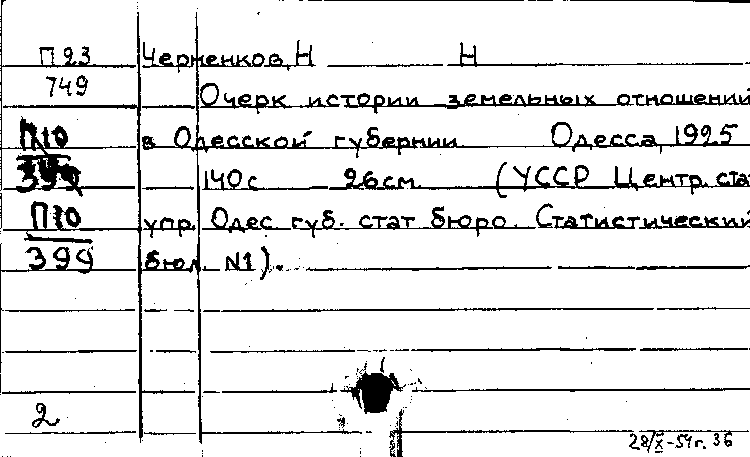 П 23 Черненков, Н Н
749 Очерк истории земельных отношений
П10 в Одесской губернии Одесса, 1925
399 140 с 26 см. (УССР Центр. стат
П10 упр. Одес губ. стат бюро. Статистический
399 бюл. N1).
2
28/X-51 г. 36